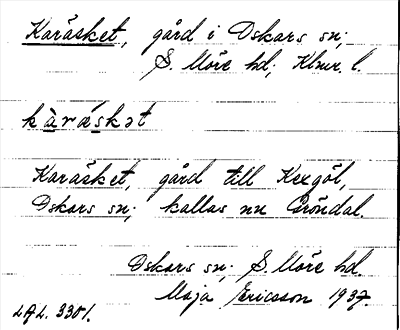 Karäsket, gård i Oskars sn;
S. Möre hd; Klmr. l.
kàrǽskət
Karäsket, gård till Kexgöl,
Oskars sn; kallas nu Gröndal.
Oskars sn; S. Möre hd.
Maja Ericsson 1937.
LAL. 3301.